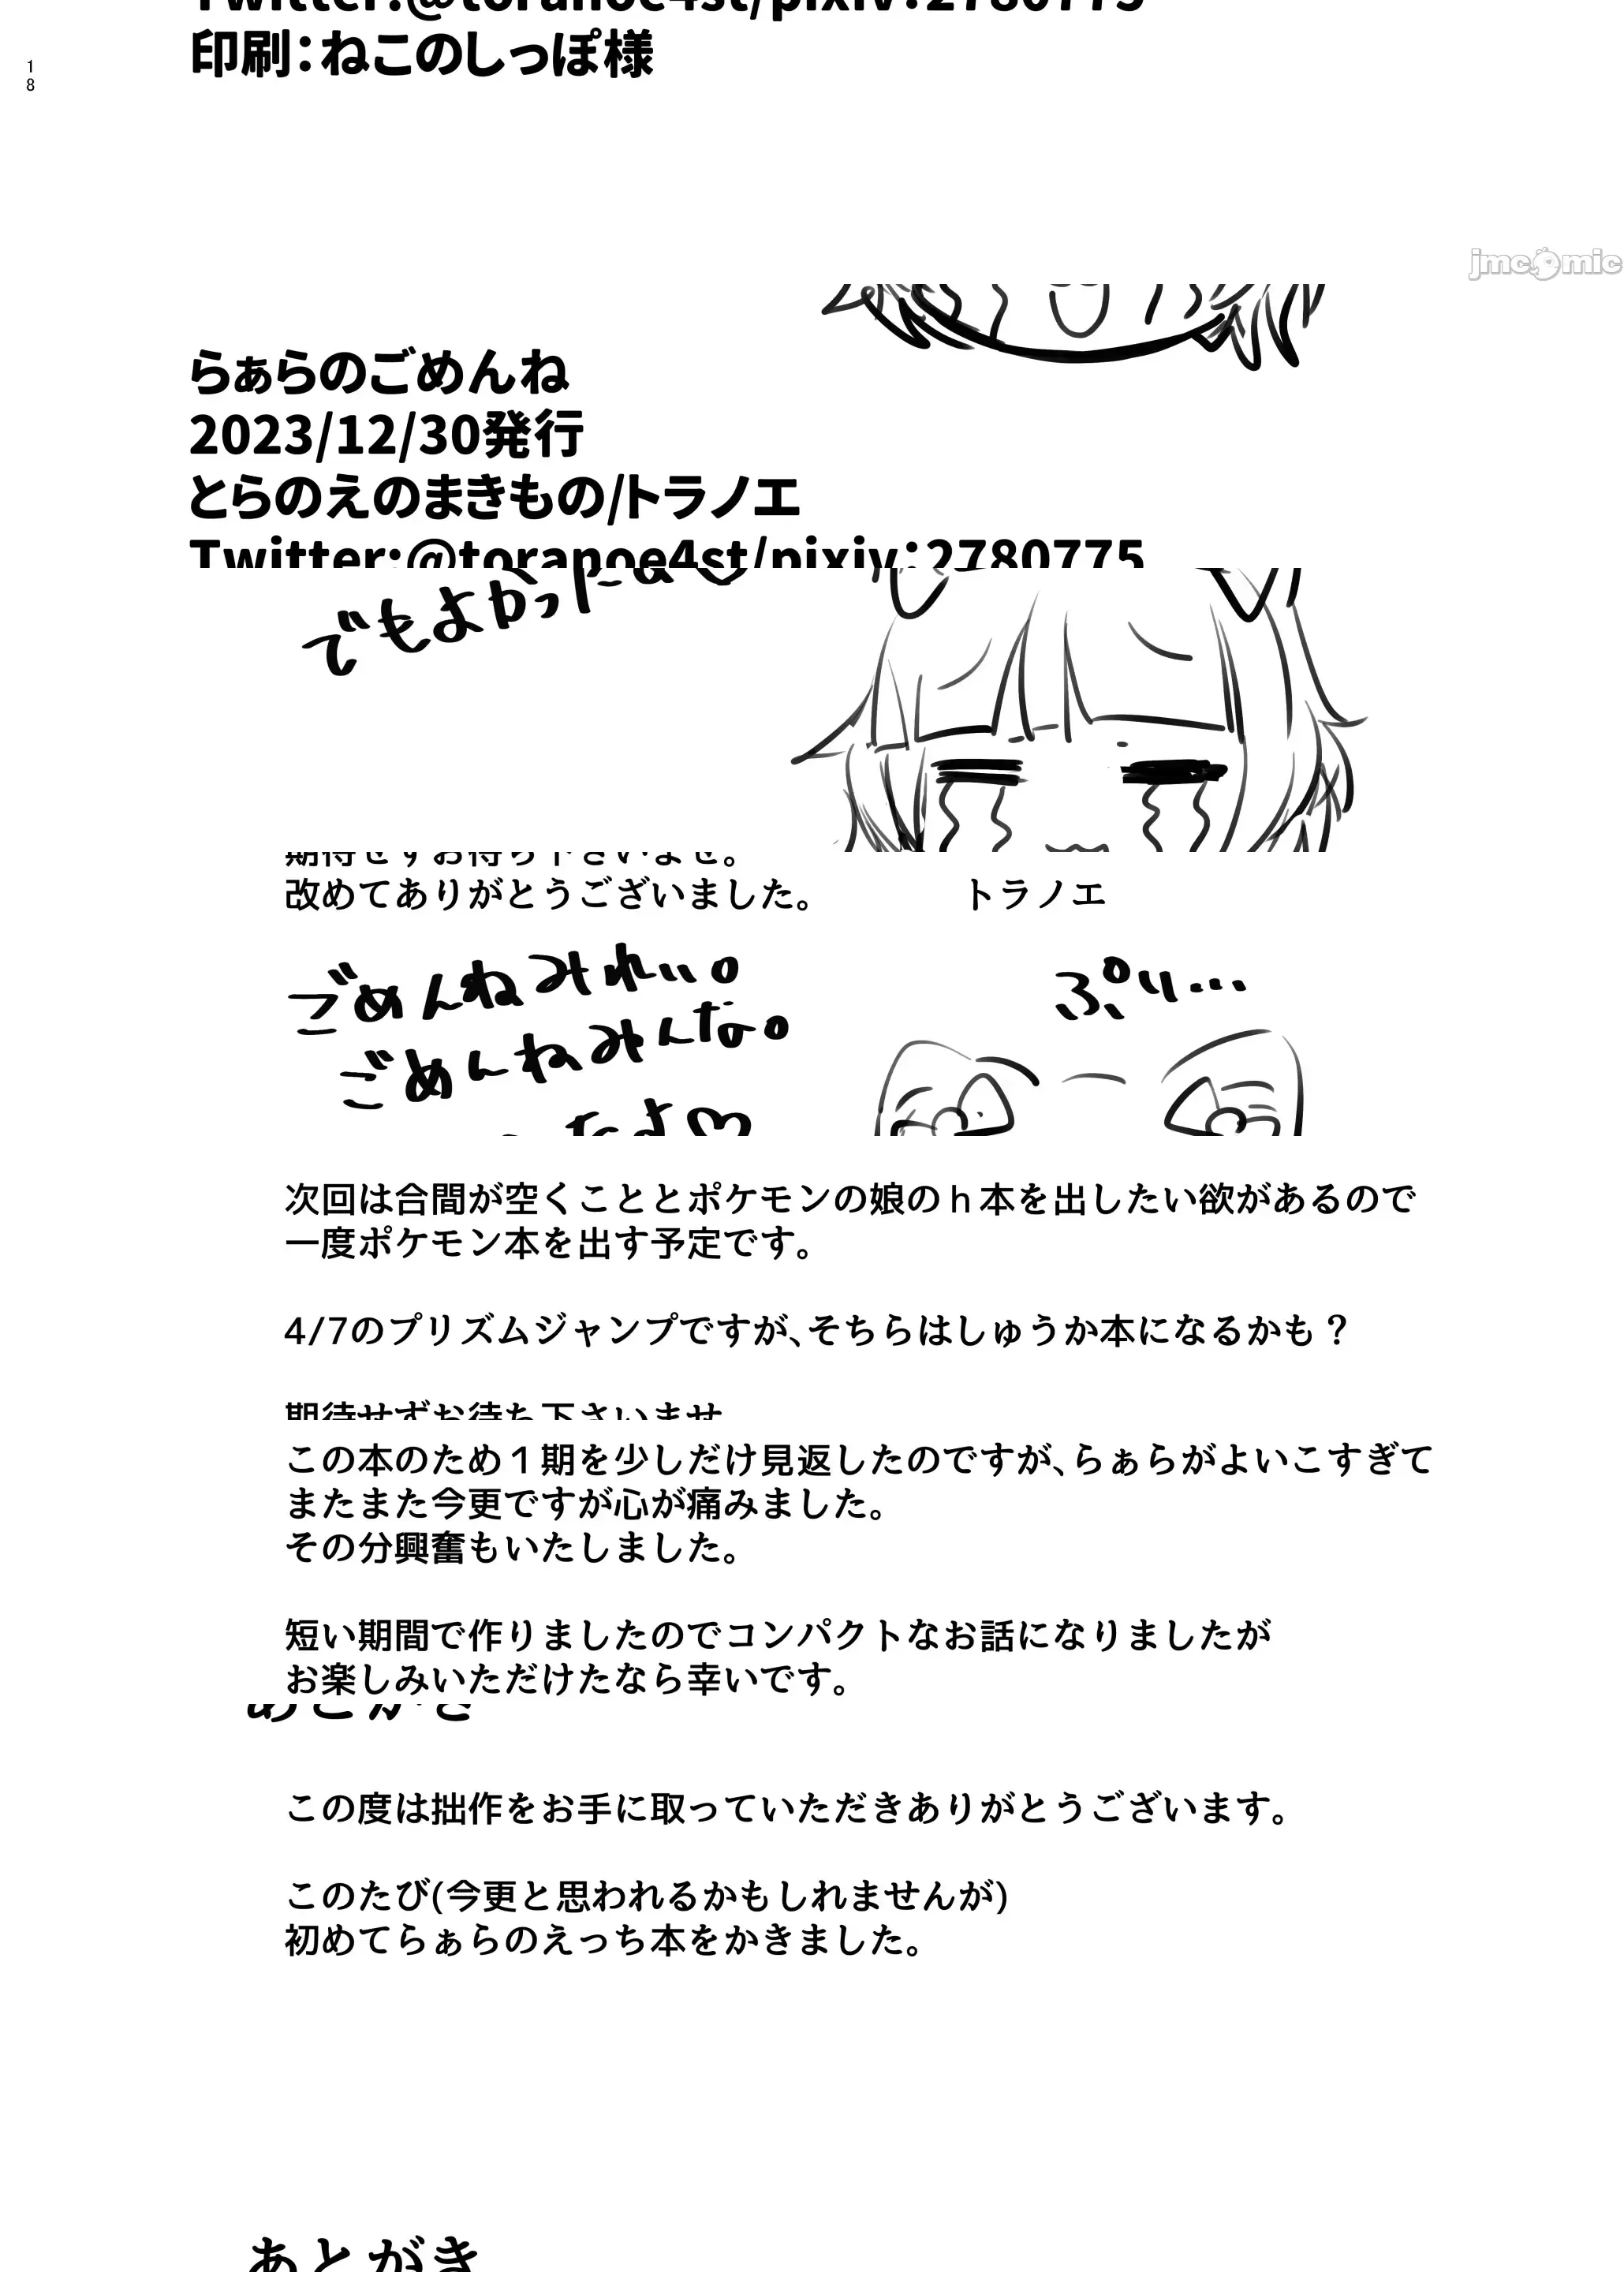 Twitter:@toranoe4st/pixiv:2780775
印刷：ねこのしっぽ様
18
jmcomic
らぁらのごめんね
2023/12/30発行
とらのえのまきもの/トラノエ
Twitter:@toranoe4st/pixiv:2780775
でもよかったα♡
期待せずお待ち下さいませ。
改めてありがとうございました。
トラノエ
ごめんねみれぃ。
ぷり…
ごめんねみんな。
次回は合間が空くこととポケモンの娘のｈ本を出したい欲があるので
一度ポケモン本を出す予定です。
4/7のプリズムジャンプですが、そちらはしゅうか本になるかも？
期待せずお待ち下さいませ
この本のため１期を少しだけ見返したのですが、らぁらがよいこすぎて
またまた今更ですが心が痛みました。
その分興奮もいたしました。
短い期間で作りましたのでコンパクトなお話になりましたが
お楽しみいただけたなら幸いです。
あとがき
この度は拙作をお手に取っていただきありがとうございます。
このたび(今更と思われるかもしれませんが)
初めてらぁらのえっち本をかきました。
あとがき